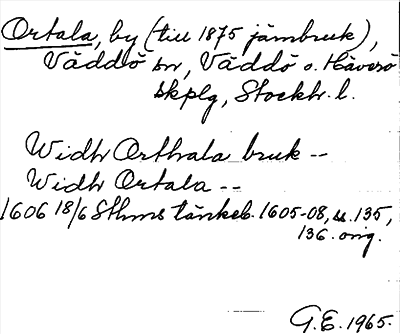 Ortala, by (till 1875 järnbruk),
Väddö sn, Väddö o. Häverö
skplg, Stockh. l.
Widh Orthala bruk --
Widh Ortala --
1606 18/6 Sthms tänkeb. 1605-08, s. 135,
136. orig.
G.E. 1965.